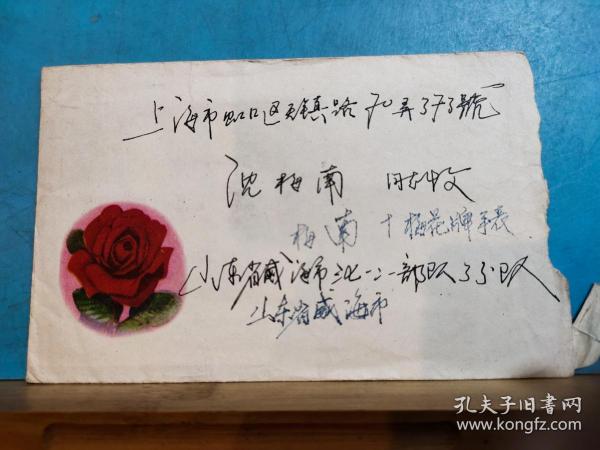 上海市虹口区天镇路70弄373號
沈梅南 同志收
梅南 十 梅花牌手表
山东省威海市三七一二一部队33队
山东省威海市
孔夫子旧书网
www.kongfz.com